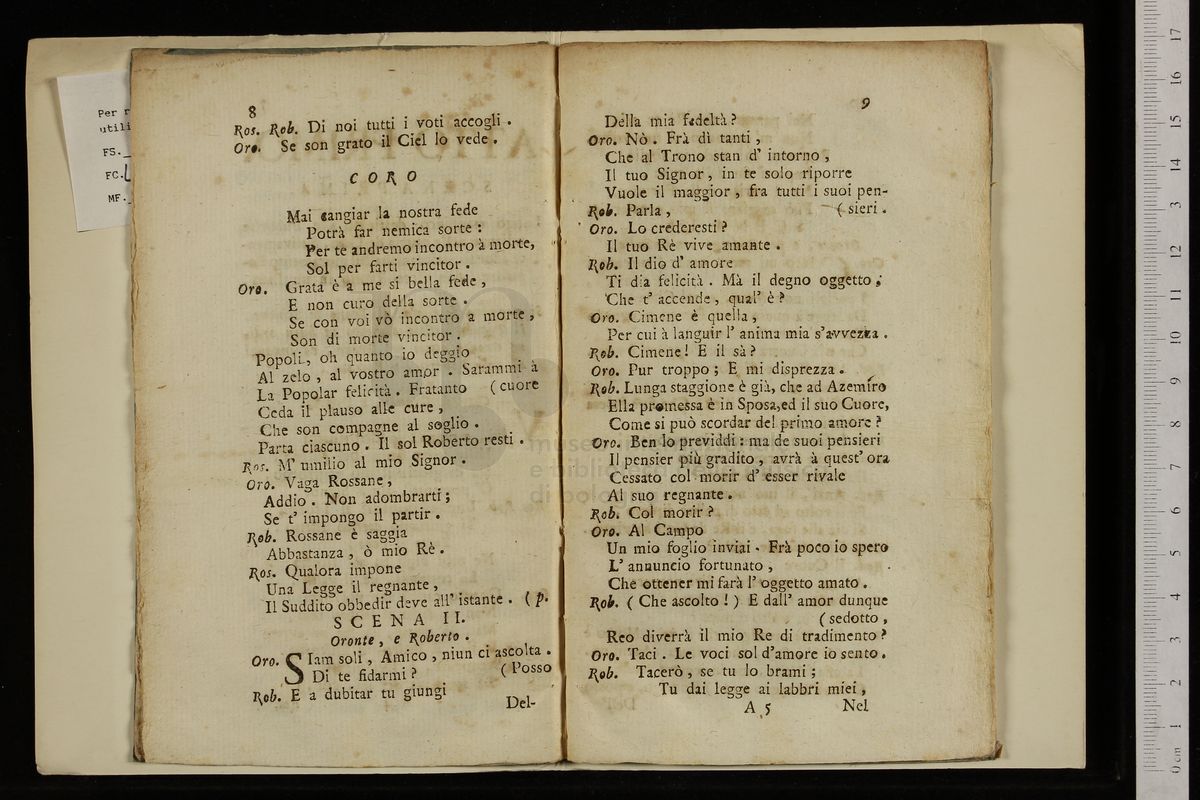 Per
utili
FS.
FC.
MF.
8
Ros. Rob. Di noi tutti i voti accogli .
Oro. Se son grato il Ciel lo vede .
CORO
Mai cangiar la nostra fede
Potrà far nemica sorte :
Per te andremo incontro à morte,
Sol per farti vincitor .
Oro. Grata è a me sì bella fede ,
E non curo della sorte .
Se con voi vò incontro a morte ,
Son di morte vincitor .
Popoli, oh quanto io deggio
Al zelo , al vostro amor . Sarammi à
La Popolar felicità . Fratanto ( cuore
Ceda il plauso alle cure ,
Che son compagne al soglio .
Parta ciascuno . Il sol Roberto resti .
Ros. M' umilio al mio Signor .
Oro. Vaga Rossane ,
Addio . Non adombrarti ;
Se t' impongo il partir .
Rob. Rossane è saggia
Abbastanza , ò mio Rè .
Ros. Qualora impone
Una Legge il regnante ,
Il Suddito obbedir deve all' istante . ( p.
SCENA II.
Oronte , e Roberto .
Oro. SIam soli , Amico , niun ci ascolta .
Di te fidarmi ? ( Posso
Rob. E a dubitar tu giungi
Del-
9
Della mia fedeltà ?
Oro. Nò . Frà di tanti ,
Che al Trono stan d' intorno ,
Il tuo Signor , in te solo riporre
Vuole il maggior , fra tutti i suoi pen-
Rob. Parla , ( sieri .
Oro. Lo crederesti ?
Il tuo Rè vive amante .
Rob. Il dio d' amore
Ti dia felicità . Mà il degno oggetto ,
Che t' accende , qual' è ?
Oro. Cimene è quella ,
Per cui à languir l' anima mia s'avvezza .
Rob. Cimene! E il sà ?
Oro. Pur troppo ; E mi disprezza .
Rob. Lunga staggione è già, che ad Azemiro
Ella promessa è in Sposa,ed il suo Cuore,
Come si può scordar del primo amore ?
Oro. Ben lo previddi : ma de suoi pensieri
Il pensier più gradito , avrà à quest' ora
Cessato col morir d' esser rivale
Al suo regnante .
Rob. Col morir ?
Oro. Al Campo
Un mio foglio inviai . Frà poco io spero
L' annuncio fortunato ,
Che ottener mi farà l' oggetto amato .
Rob. ( Che ascolto ! ) E dall' amor dunque
( sedotto ,
Reo diverrà il mio Re di tradimento ?
Oro. Taci . Le voci sol d'amore io sento .
Rob. Tacerò , se tu lo brami ;
Tu dai legge ai labbri miei ,
A 5 Nel
0 cm 1 2 3 4 5 6 7 8 9 10 11 12 13 14 15 16 17